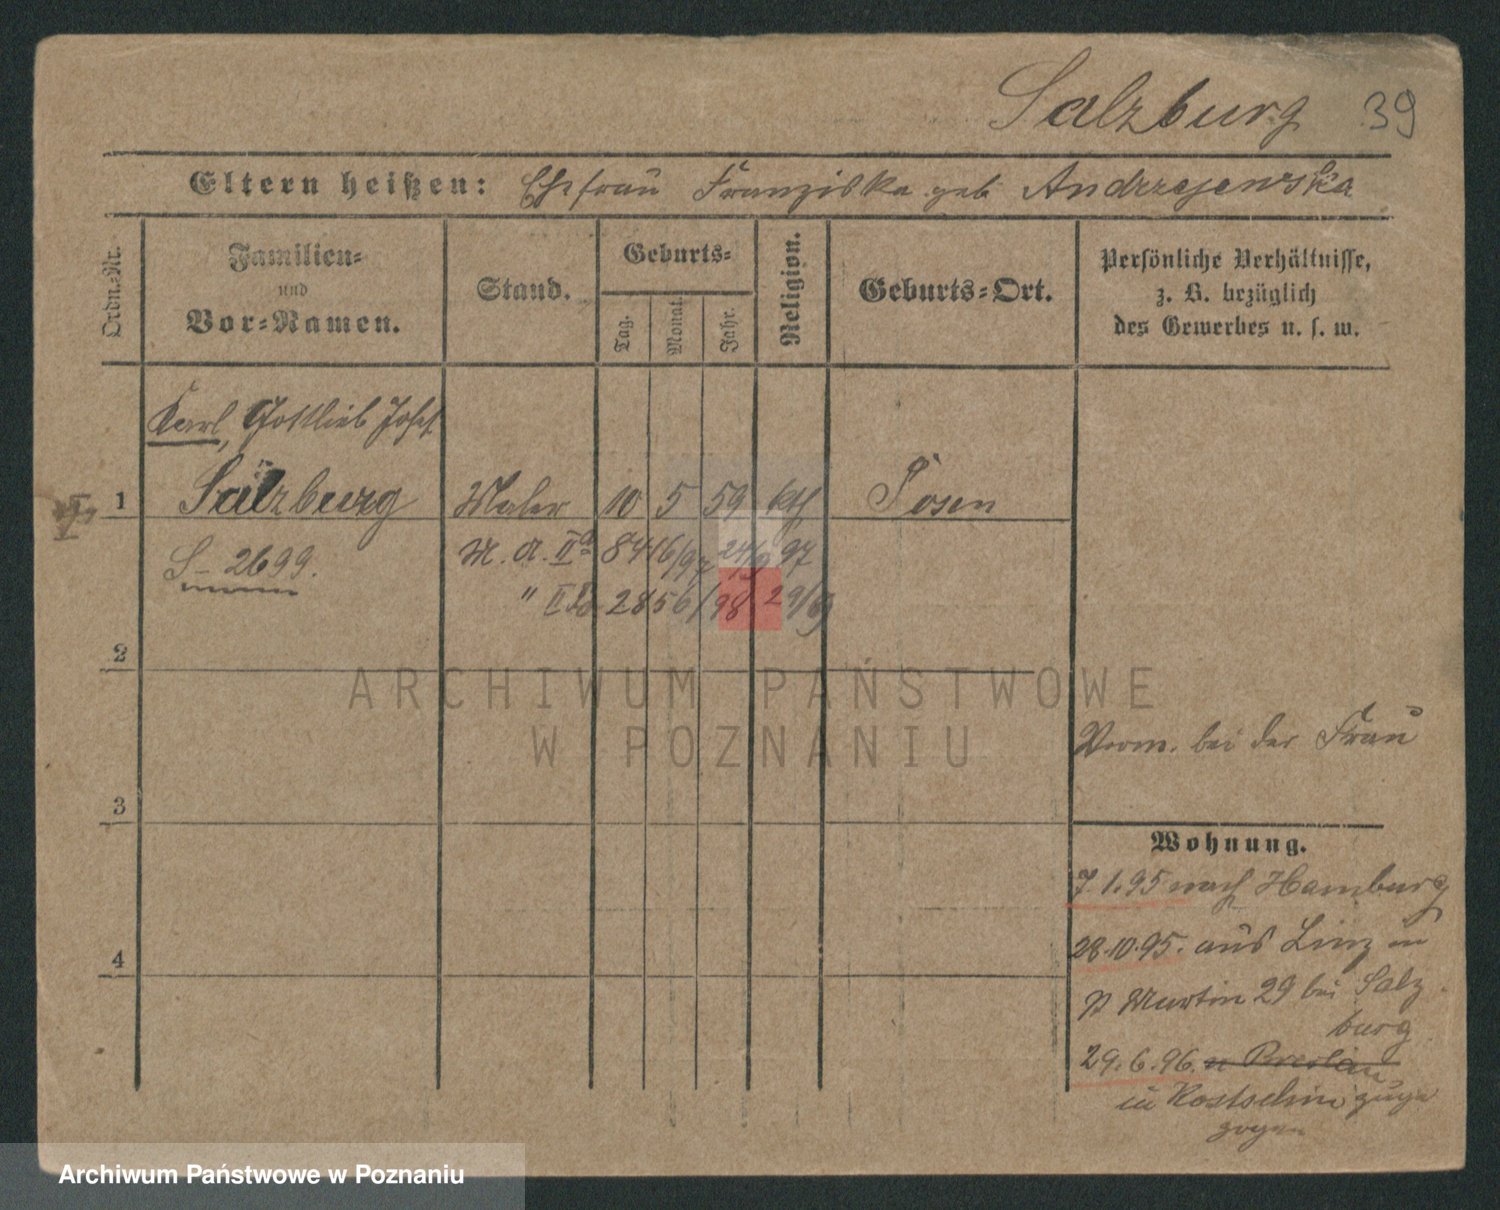 Salzburg 39
Eltern heißen: Ehefrau Franziska geb Andrzejewska
Ordn.-Nr.
Familien-
und
Vor-Namen.
Stand.
Geburts-
Tag.
Monat.
Jahr.
Religion.
Geburts-Ort.
Persönliche Verhältnisse,
z. B. bezüglich
des Gewerbes u. s. w.
Karl, Gottlieb Josef
1 Salzburg Maler 10 5 59 kth Posen
S- 2699. M. A. IIa 8446/97 24/9 97
" IIb 2856/98 29/9
2
ARCHIWUM PAŃSTWOWE
W POZNANIU
Verm. bei der Frau
3
Wohnung.
7.1.95 nach Hamburg
28.10.95. aus Linz in
4
Martin 29 bei Salz
burg
29.6.96. n Breslau
in Rostschin zuge
zogen
Archiwum Państwowe w Poznaniu